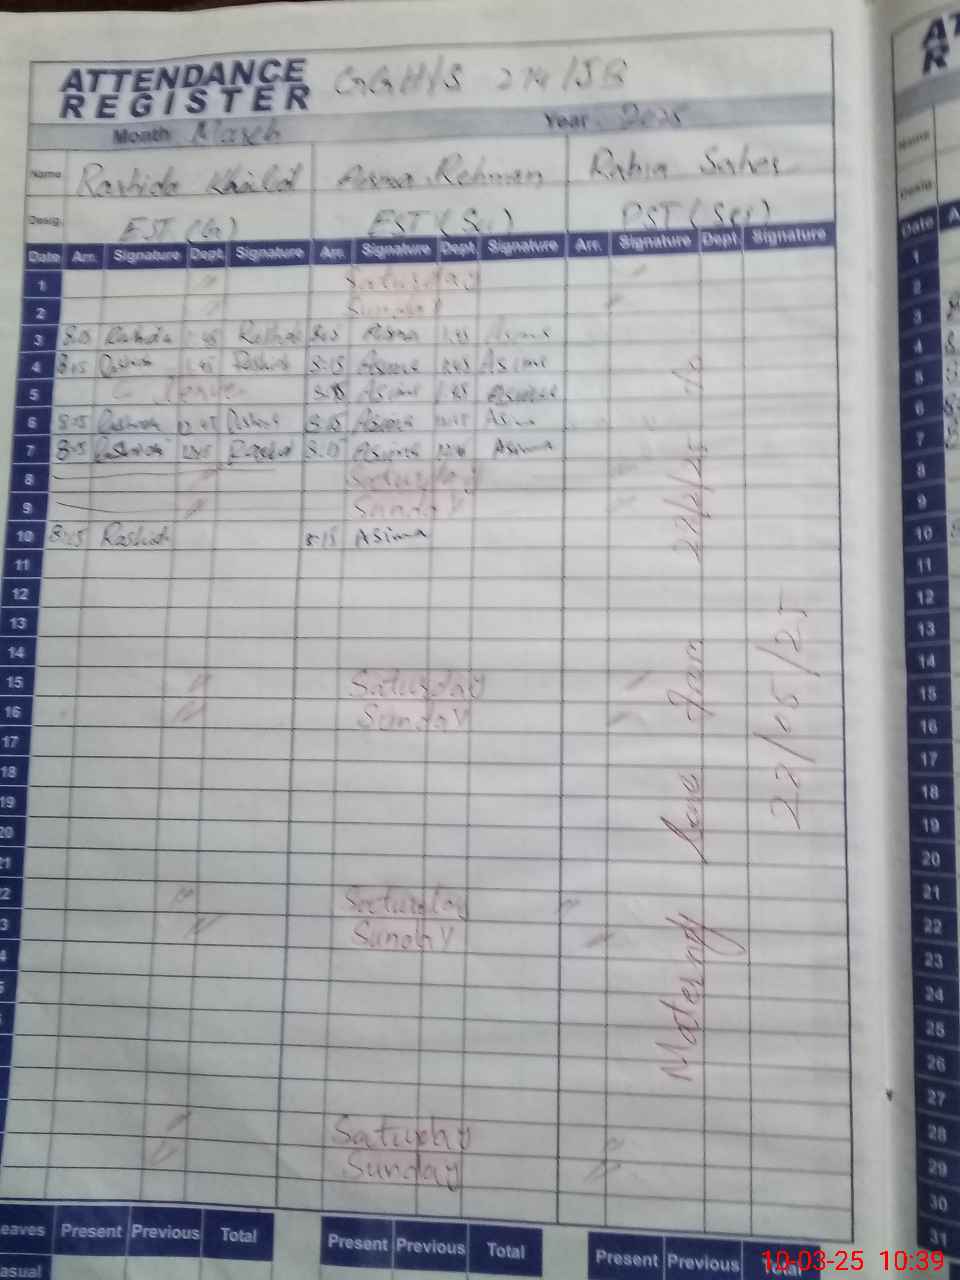 ATTENDANCE REGISTER GGH/S 214/JB
Month March Year 2025
Name Rashida Khalid Asma Rehman Rabia Saher
Desig. EST (G) EST (Sc) PST (Sci)
Date Arr. Signature Dept. Signature Arr. Signature Dept. Signature Arr. Signature Dept. Signature
1 Saturday
2 Sunday
3 8:15 Rashida 1:45 Rashida 8:15 Asima 1:45 Asima
4 8:15 Rashida 1:45 Rashida 8:15 Asima 12:45 Asima
5 C Leave 8:15 Asima 1:45 Asima
6 8:15 Rashida 12:45 8:15 Asima 12:45 Asima
7 8:15 Rashida 12:45 Rashid 8:15 Asima 12:45 Asima
8 Saturday
9 Sunday
10 8:15 Rashid 8:15 Asima
11
12
13
14
15 Saturday
16 Sunday
17
18
19
20
21
22 Saturday
23 Sunday
Saturday
Sunday
Maternity from to
22/05/25
Leaves Present Previous Total Present Previous Total Present Previous Total
Casual
AT
R
Name
Desig.
Date A
1
2
3
4
5
6
7
8
9
10
11
12
13
14
15
16
17
18
19
20
21
22
23
24
25
26
27
28
29
30
31
10-03-25 10:39